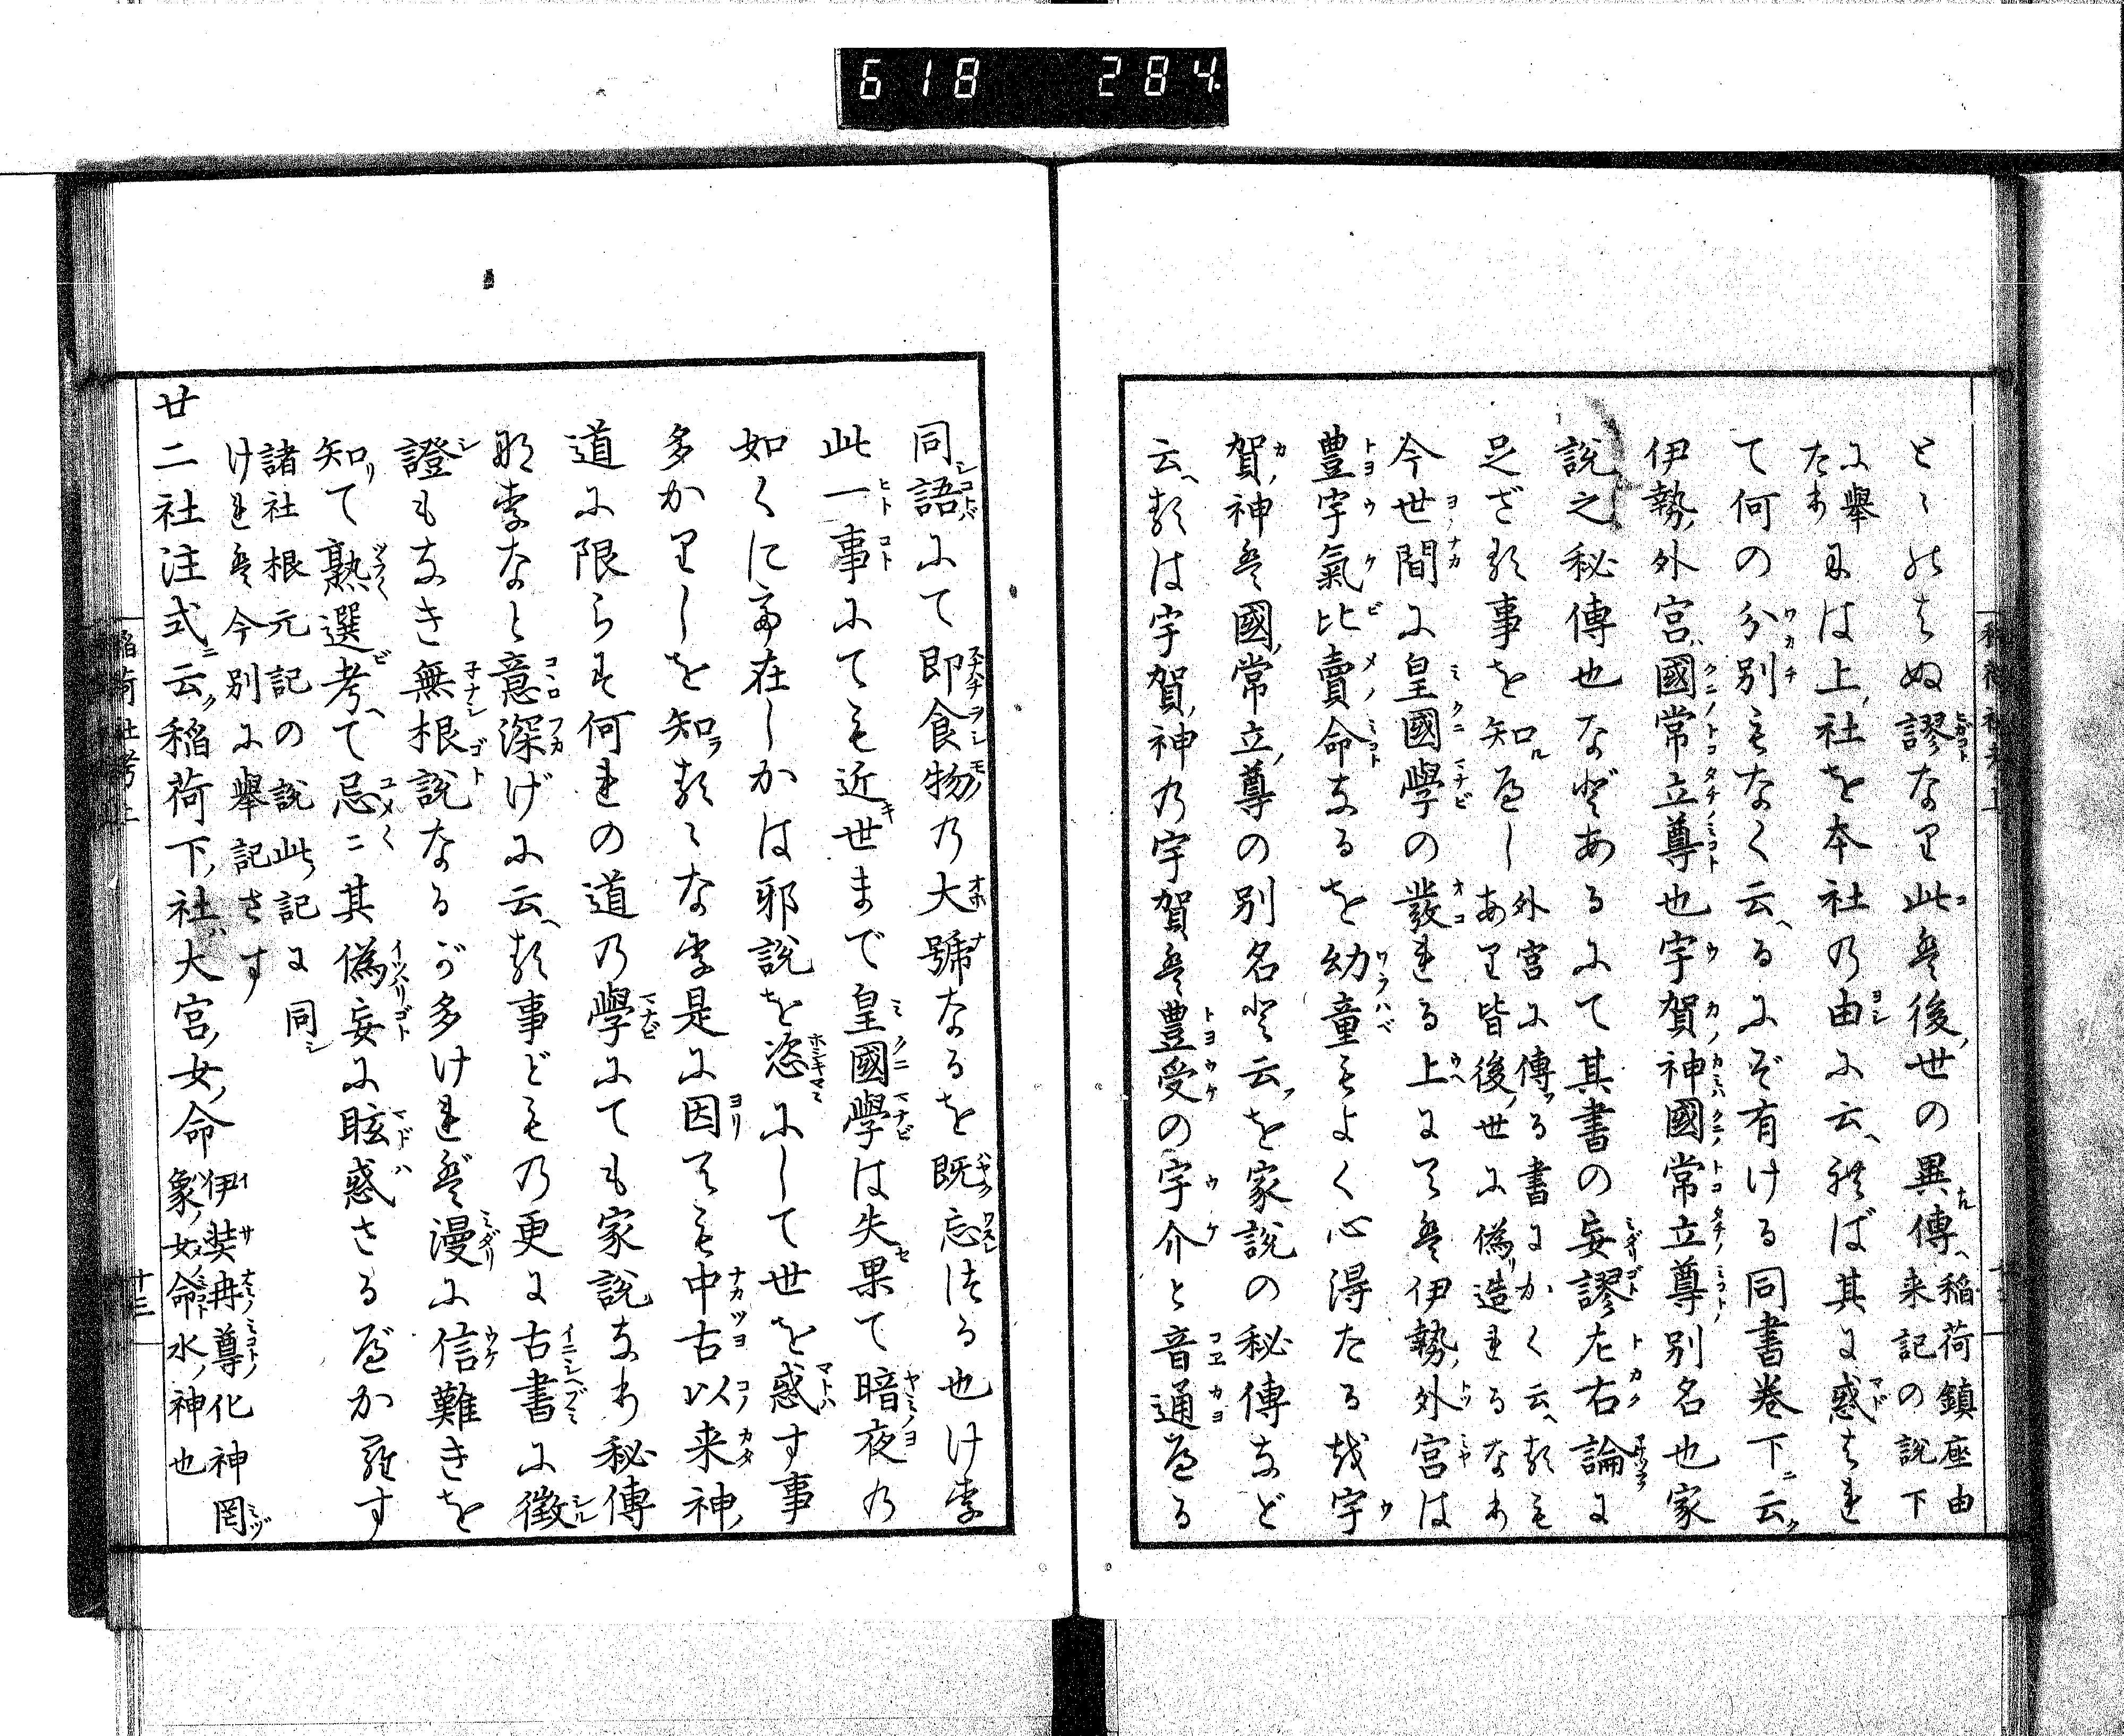 618 284
とゝのはぬ謬なり此は後世の異傳稲荷鎮座由来記の説下
に擧たりまには上社を本社の由に云へれば其に惑はれ
て何の分別もなく云へるにぞ有ける同書巻下ニ云ク
伊勢外宮國常立尊也宇賀神國常立尊別名也家
説之秘傳也などあるにて其書の妄謬左右論に
足ざる事を知べし外宮に傳る書にかく云へるもあり皆後世に偽造れるなり
今世間に皇國學の發れる上には伊勢外宮は
豊宇氣比賣命なるを幼童もよく心得たるを宇
賀神は國常立尊の別名と云を家説の秘傳など
云へるは宇賀神の宇賀は豊受の宇介と音通へる
同語にて即食物の大號なるを既忘たる也けり
此一事にても近世まで皇國學は失果て暗夜の
如くに在しかは邪説を恣にして世を惑す事
多かりしを知るへなり是に因ても中古以来神
道に限らず何れの道の學にても家説なり秘傳
なりなと意深げに云へる事どもの更に古書に徴
證もなき無根説なるが多ければ漫に信難きを
知て熟選考へて忌々其偽妄に眩惑さるべからす
諸社根元記の説此記に同し
ければ今別に擧記さす
廿二社注式ニ云ク稲荷下社大宮女命伊弉冉尊化神罔象女命水神也
稲荷社考上
十三